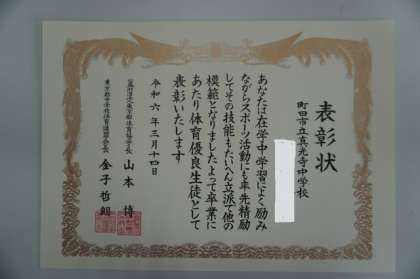 表彰状
町田市立真光寺中学校
あなたは在学中学習によく励み
ながらスポーツ活動にも率先精励
してその技能もたいへん立派で他の
模範となりましたよって卒業に
あたり体育優良生徒として
表彰いたします
令和六年三月十四日
公益財団法人東京都体育協会会長
山本博
東京都中学校体育連盟会長
金子哲朗